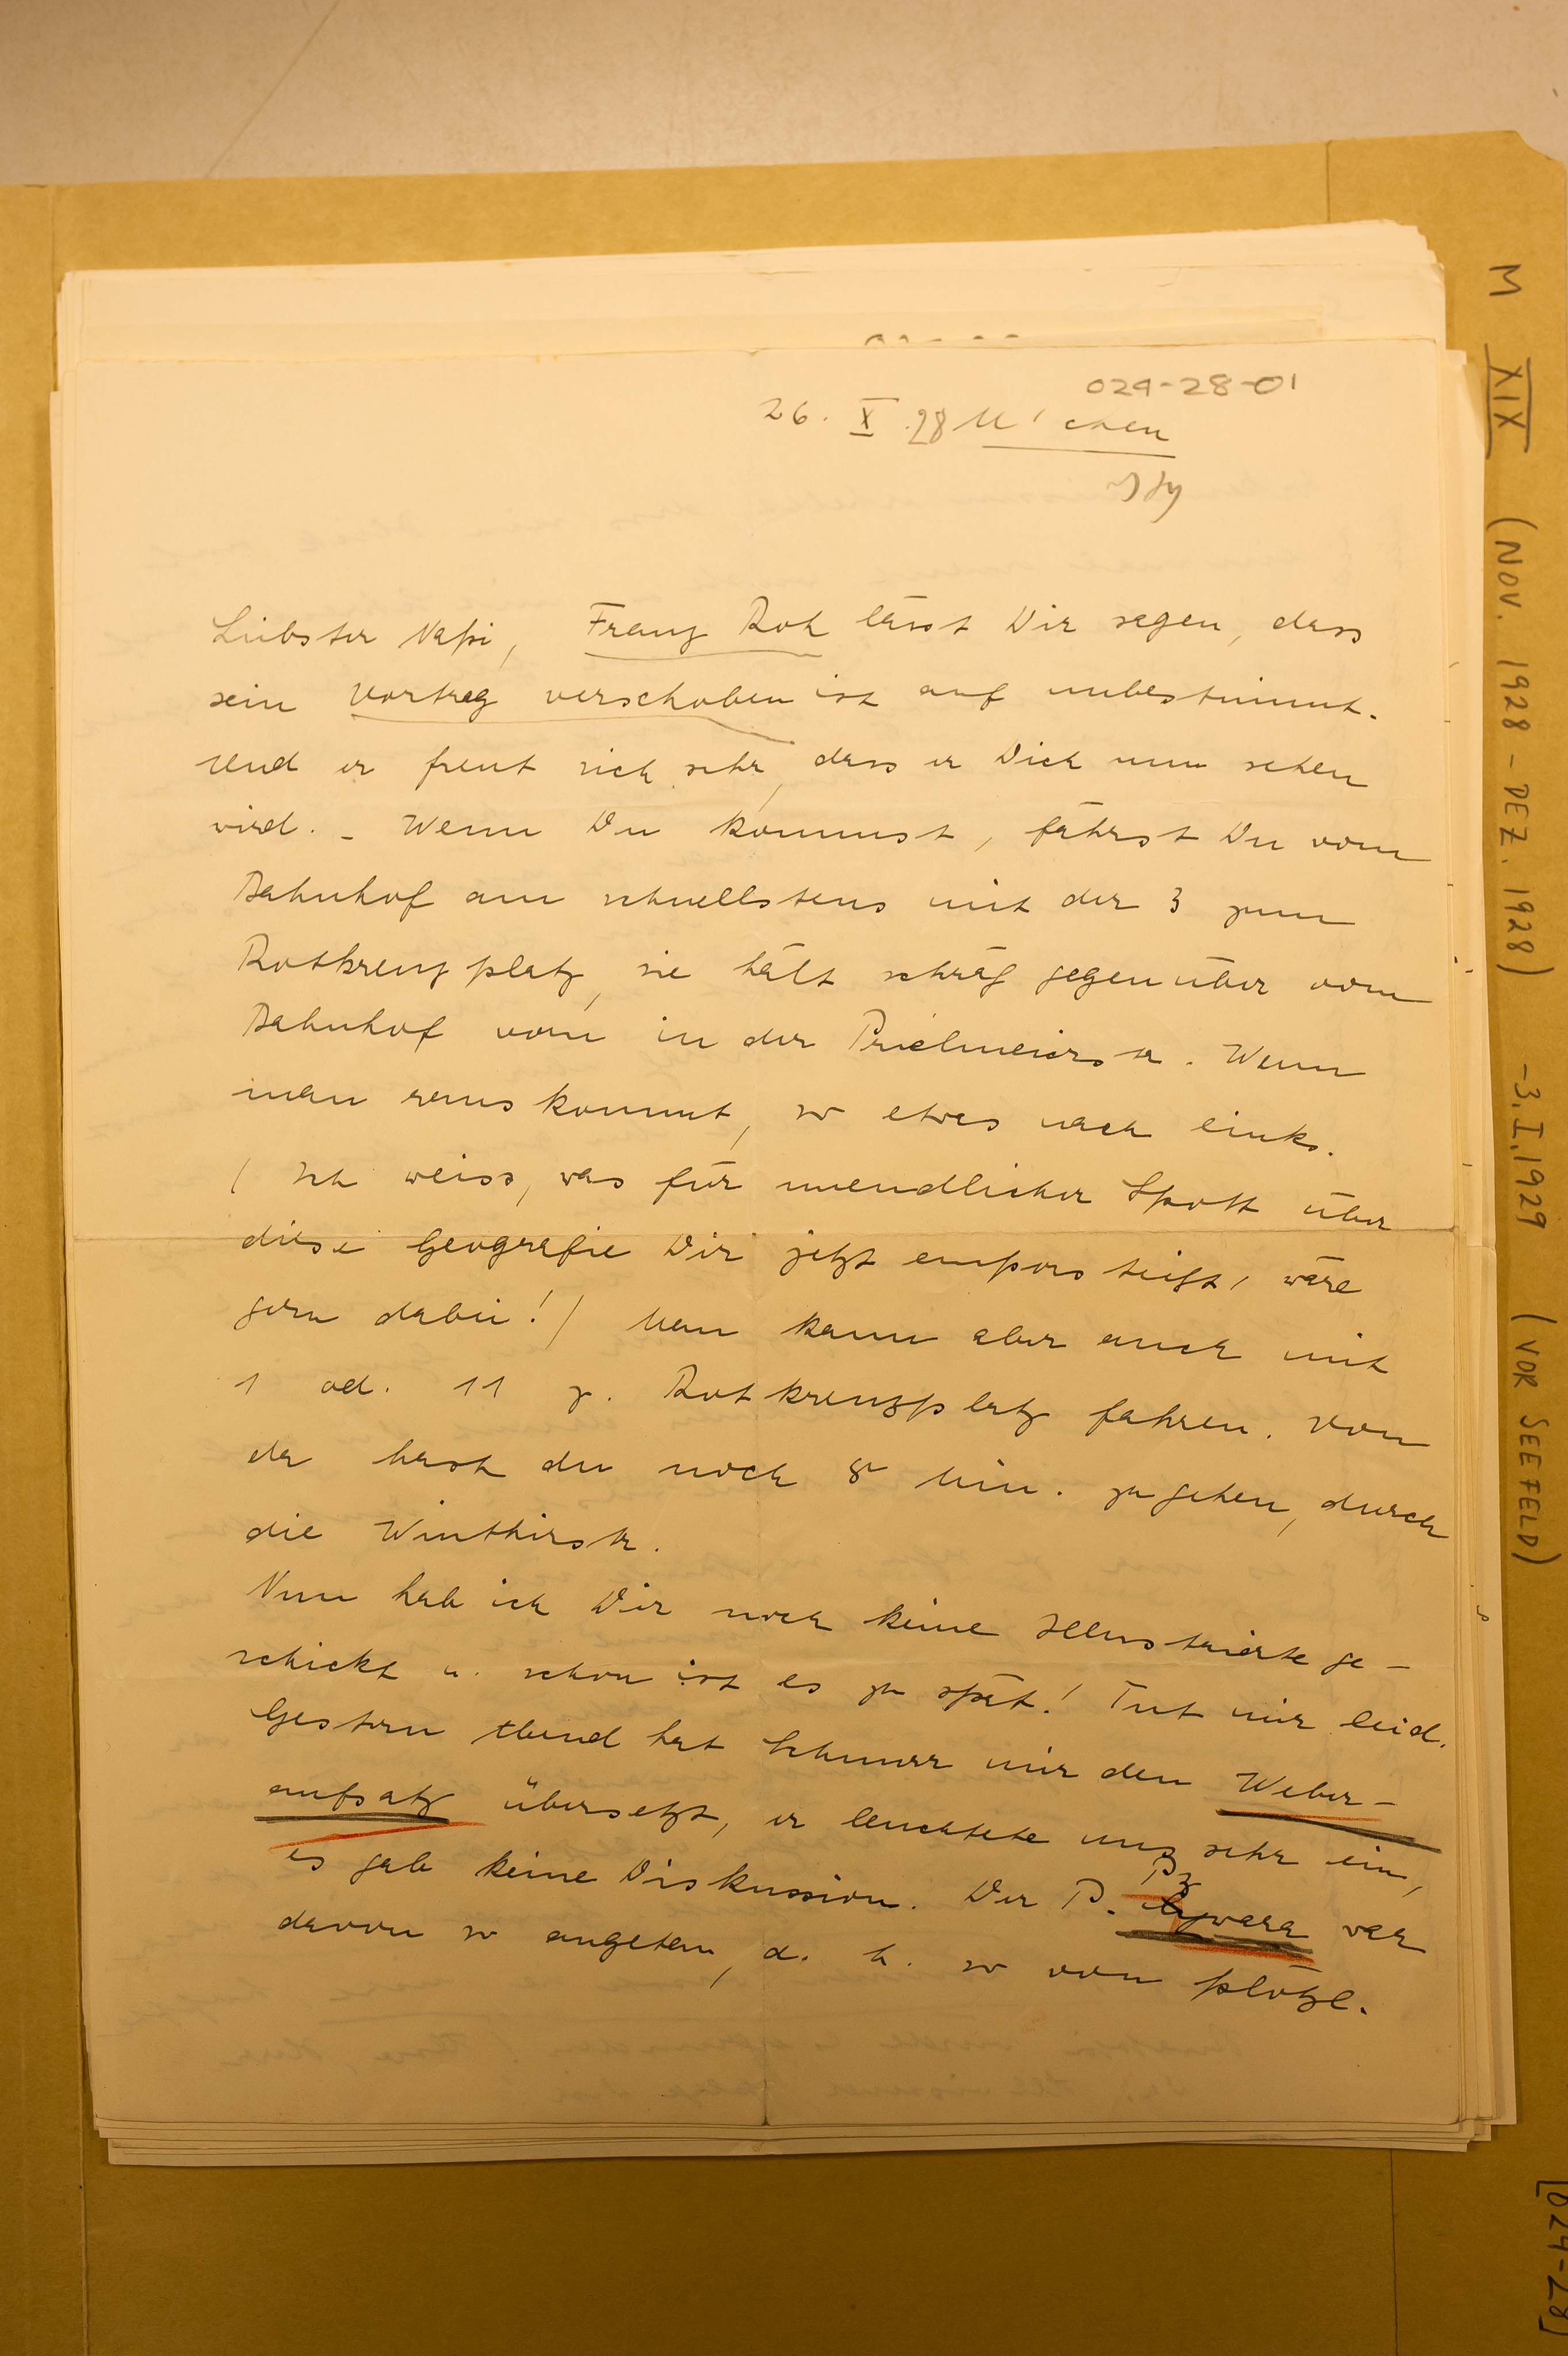 029-28-01
26. X. 28 M'chen
Liebster Napi, Franz Roh lässt Dir sagen, dass
sein Vortrag verschoben ist auf unbestimmt.
Und er freut sich sehr, dass er Dich nun sehen
wird. - Wenn Du kommst, fährst Du vom
Bahnhof am schnellstens mit der 3 zum
Rotkreuzplatz, sie hält schräg gegenüber vom
Bahnhof vorn in der Prielmeierstr. Wenn
man rauskommt, so etwas nach links.
(Ich weiss, was für unendlicher Spott über
diese Geografie Dir jetzt emporsteigt, wäre
gern dabei!) Man kann aber auch mit
1 od. 11 z. Rotkreuzplatz fahren. Von
da hast du noch 8 Min. zu gehen, durch
die Winthirstr.
Nun hab ich Dir noch keine Illustrierte ge-
schickt u. schon ist es zu spät! Tut mir leid.
Gestern Abend hat Schnurr mir den Weber-
aufsatz übersetzt, er leuchtete uns sehr ein,
es gab keine Diskussion. Der P. Przwara war
davon so angetan, d. h. so von plötzl.
M XIX (NOV. 1928 - DEZ. 1928) -3.I.1929 (VOR SEEFELD)
[024-28]